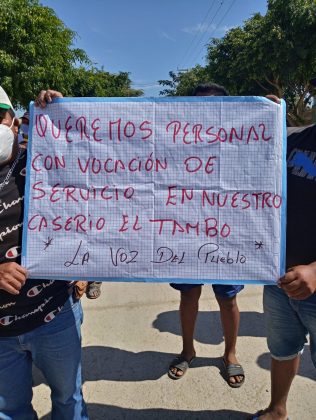 QUEREMOS PERSONAL
CON VOCACIÓN DE
SERVICIO EN NUESTRO
CASERIO EL TAMBO
* LA VOZ DEL PUEBLO *
Champion